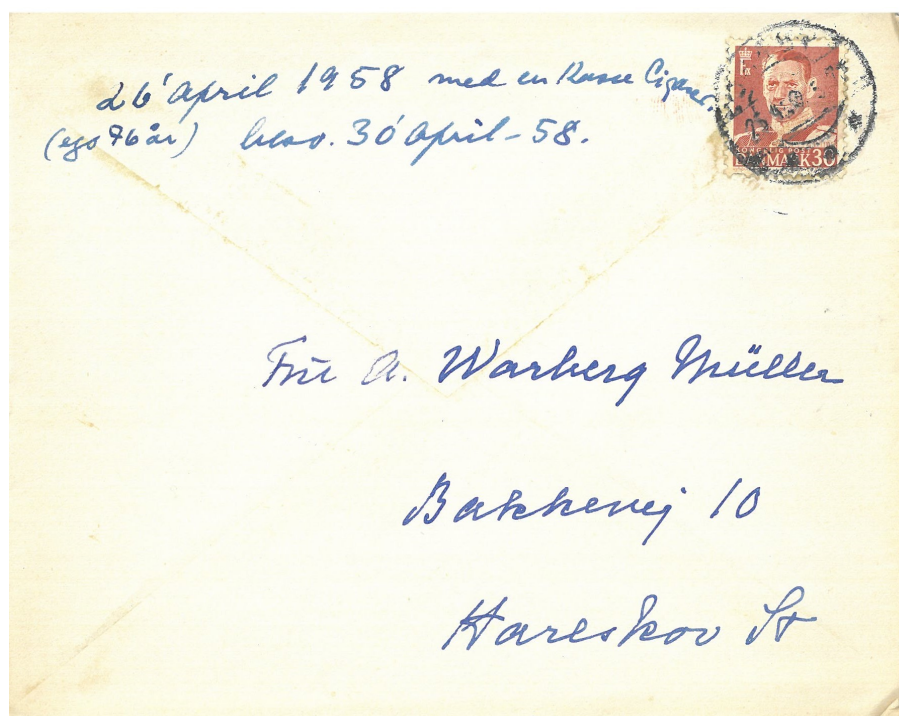 26' April 1958 med en Kasse Cigarer.
(ego 76 år) besv. 30' April - 58.
KONGELIG POST
DANMARK 30
Fru A. Warberg Müller
Bakkevej 10
Hareskov St